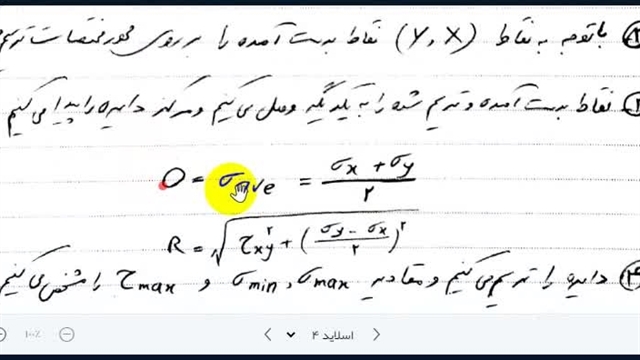 ② با توجه به نقاط (X, Y) نقاط بدست آمده را بر روی محور مختصات ترسیم
نقاط بدست آمده و ترسیم شده را به یکدیگر وصل می کنیم و مرکز دایره را پیدا می کنیم
O = σave = (σx + σy) / ۲
R = √(τxy² + ((σy − σx) / ۲)²)
دایره را ترسیم می کنیم و مقادیر σmax ، σmin و τmax را مشخص می کنیم
اسلاید ۴